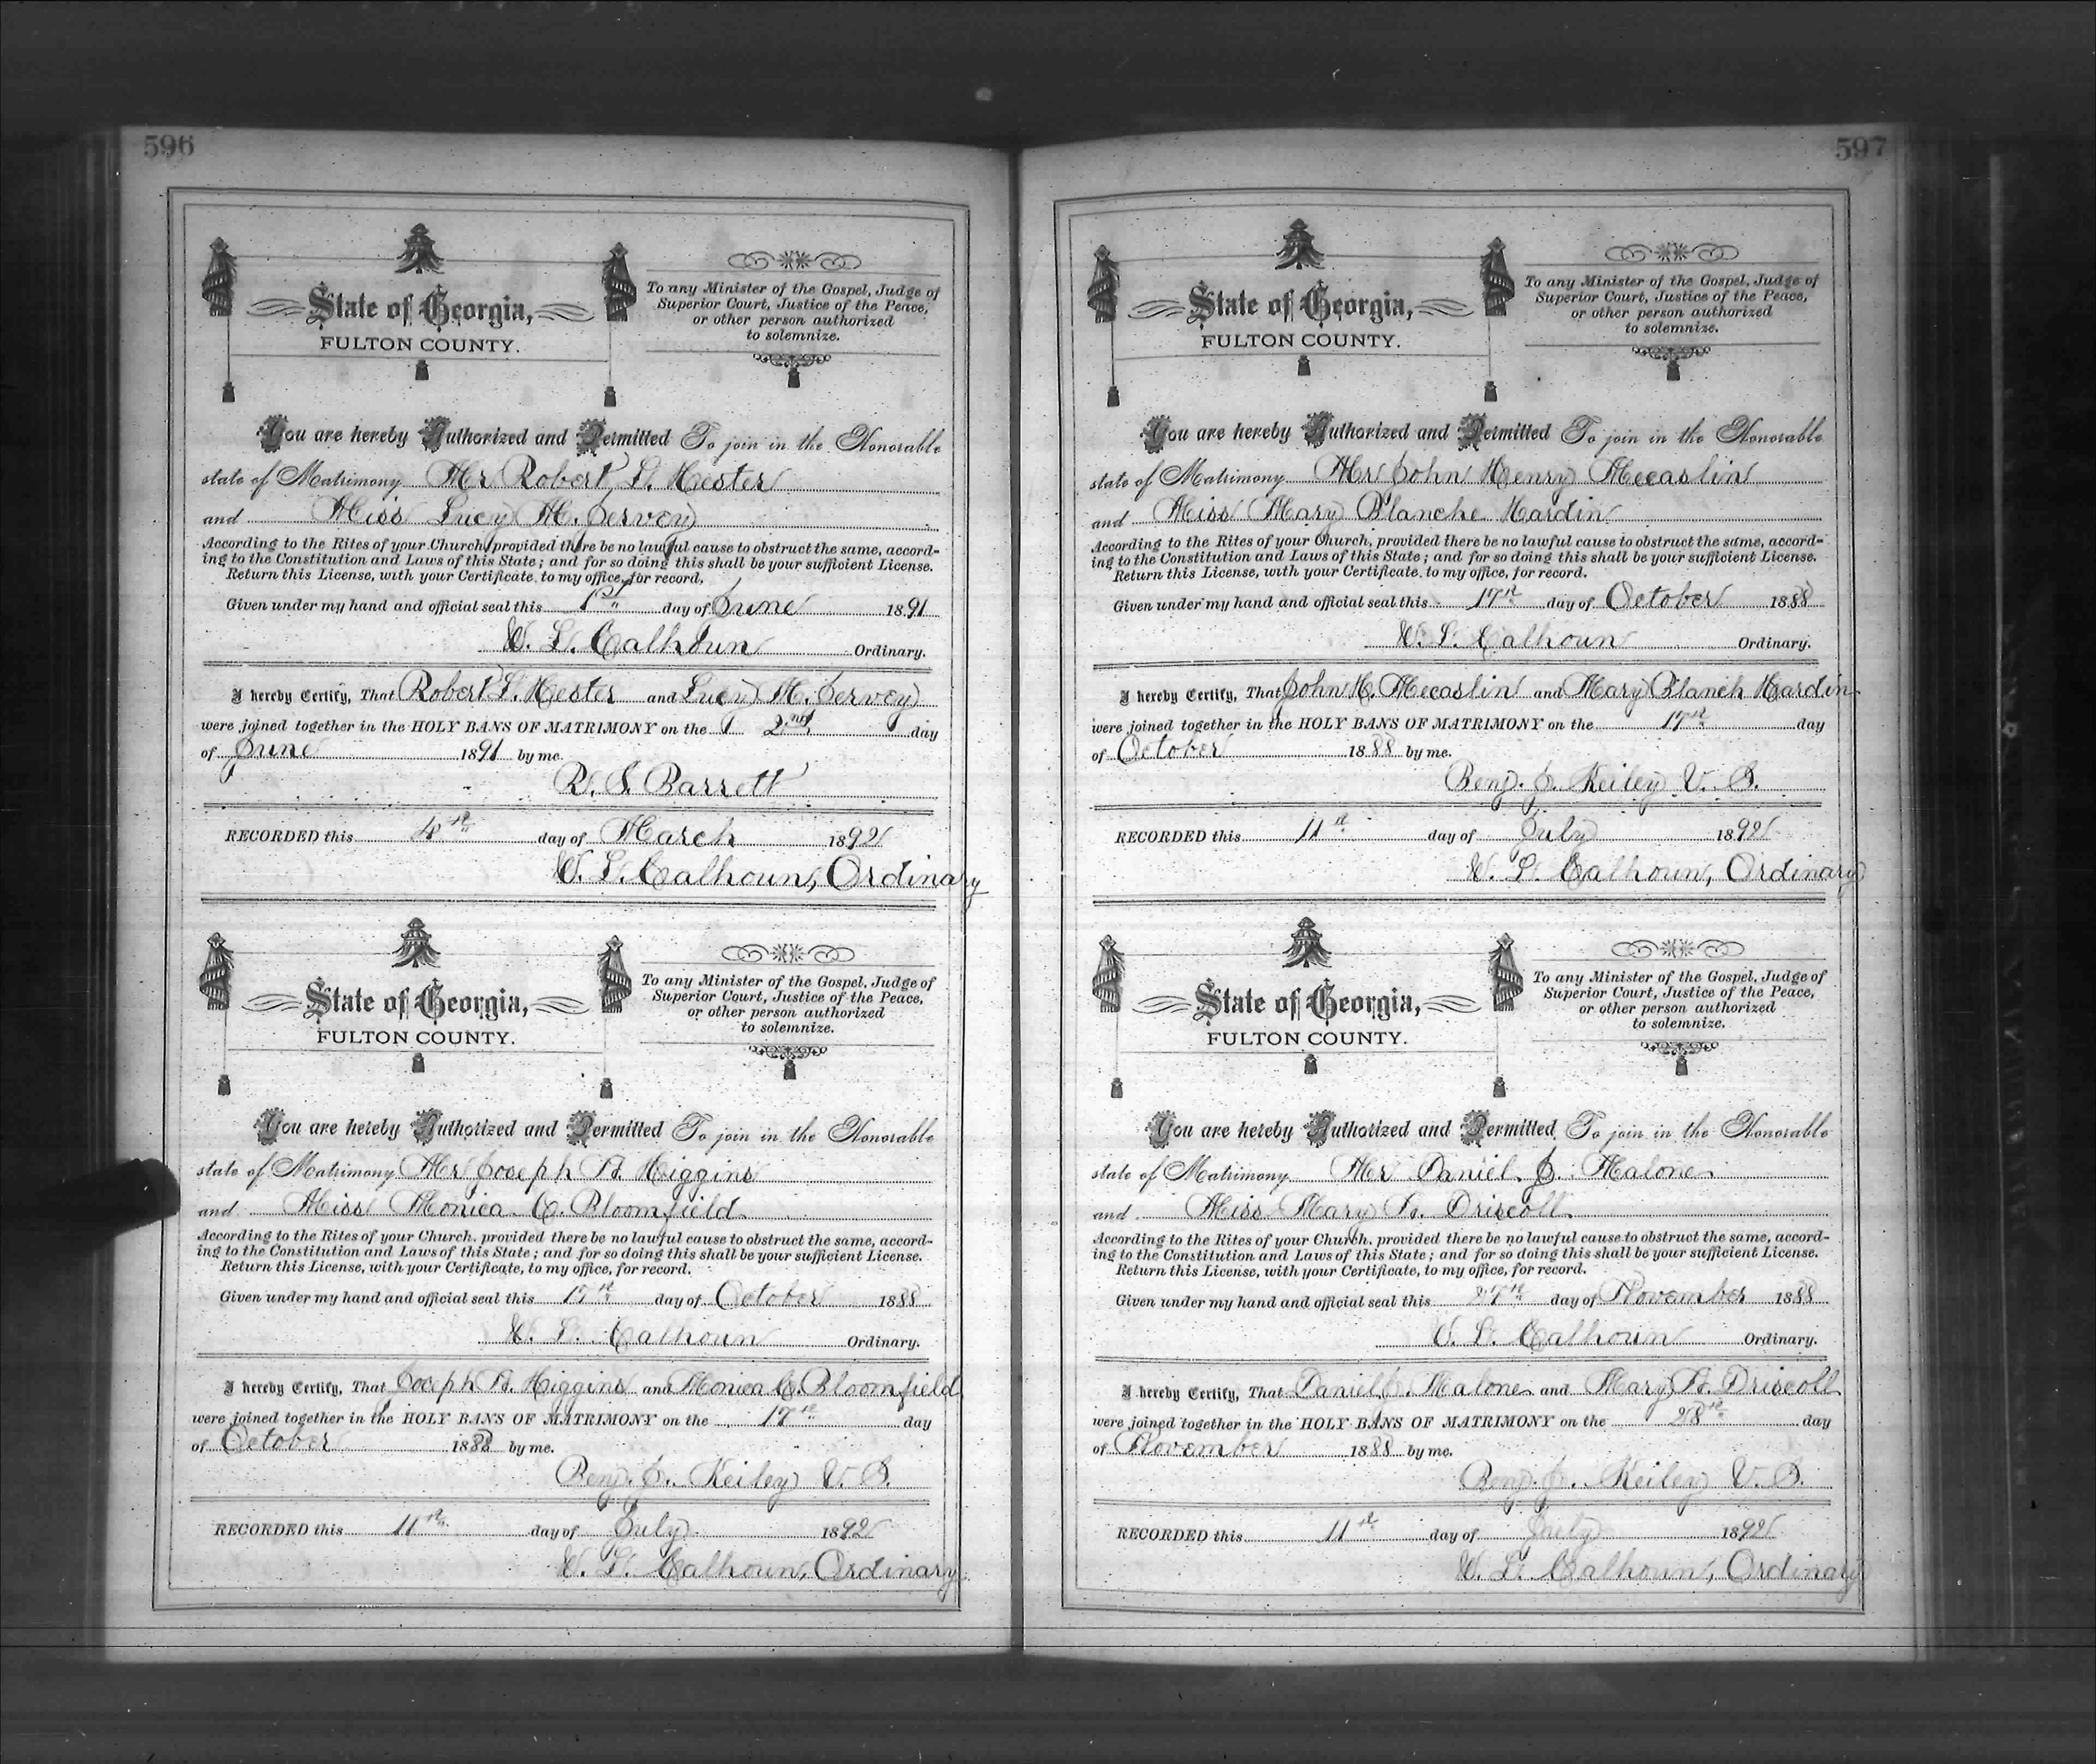 596
State of Georgia,
FULTON COUNTY.
To any Minister of the Gospel, Judge of
Superior Court, Justice of the Peace,
or other person authorized
to solemnize.
You are hereby Authorized and Permitted To join in the Honorable
state of Matrimony Mr Robert L. Hester
and Miss Lucy M. Jervey
According to the Rites of your Church, provided there be no lawful cause to obstruct the same, accord-
ing to the Constitution and Laws of this State; and for so doing this shall be your sufficient License.
Return this License, with your Certificate, to my office, for record.
Given under my hand and official seal this 1st day of June 1891
W. L. Calhoun Ordinary.
I hereby Certify, That Robert L. Hester and Lucy M. Jervey
were joined together in the HOLY BANS OF MATRIMONY on the 2nd day
of June 1891 by me.
R. S. Barrett
RECORDED this 4th day of March 1892
W. L. Calhoun, Ordinary
State of Georgia,
FULTON COUNTY.
To any Minister of the Gospel, Judge of
Superior Court, Justice of the Peace,
or other person authorized
to solemnize.
You are hereby Authorized and Permitted To join in the Honorable
state of Matrimony Mr Joseph A. Higgins
and Miss Monica C. Bloomfield
According to the Rites of your Church, provided there be no lawful cause to obstruct the same, accord-
ing to the Constitution and Laws of this State; and for so doing this shall be your sufficient License.
Return this License, with your Certificate, to my office, for record.
Given under my hand and official seal this 17th day of October 1888
W. L. Calhoun Ordinary.
I hereby Certify, That Joseph A. Higgins and Monica C. Bloomfield
were joined together in the HOLY BANS OF MATRIMONY on the 17th day
of October 1888 by me.
Benj. J. Keiley V. G.
RECORDED this 11th day of July 1892
W. L. Calhoun, Ordinary
597
State of Georgia,
FULTON COUNTY.
To any Minister of the Gospel, Judge of
Superior Court, Justice of the Peace,
or other person authorized
to solemnize.
You are hereby Authorized and Permitted To join in the Honorable
state of Matrimony Mr John Henry Mecaslin
and Miss Mary Blanche Hardin
According to the Rites of your Church, provided there be no lawful cause to obstruct the same, accord-
ing to the Constitution and Laws of this State; and for so doing this shall be your sufficient License.
Return this License, with your Certificate, to my office, for record.
Given under my hand and official seal this 17th day of October 1888
W. L. Calhoun Ordinary.
I hereby Certify, That John H. Mecaslin and Mary Blanch Hardin
were joined together in the HOLY BANS OF MATRIMONY on the 17th day
of October 1888 by me.
Benj. J. Keiley V. G.
RECORDED this 11th day of July 1892
W. L. Calhoun, Ordinary
State of Georgia,
FULTON COUNTY.
To any Minister of the Gospel, Judge of
Superior Court, Justice of the Peace,
or other person authorized
to solemnize.
You are hereby Authorized and Permitted To join in the Honorable
state of Matrimony Mr Daniel J. Malone
and Miss Mary A. Driscoll
According to the Rites of your Church, provided there be no lawful cause to obstruct the same, accord-
ing to the Constitution and Laws of this State; and for so doing this shall be your sufficient License.
Return this License, with your Certificate, to my office, for record.
Given under my hand and official seal this 27th day of November 1888
W. L. Calhoun Ordinary.
I hereby Certify, That Daniel J. Malone and Mary A. Driscoll
were joined together in the HOLY BANS OF MATRIMONY on the 28th day
of November 1888 by me.
Benj. J. Keiley V. G.
RECORDED this 11th day of July 1892
W. L. Calhoun, Ordinary